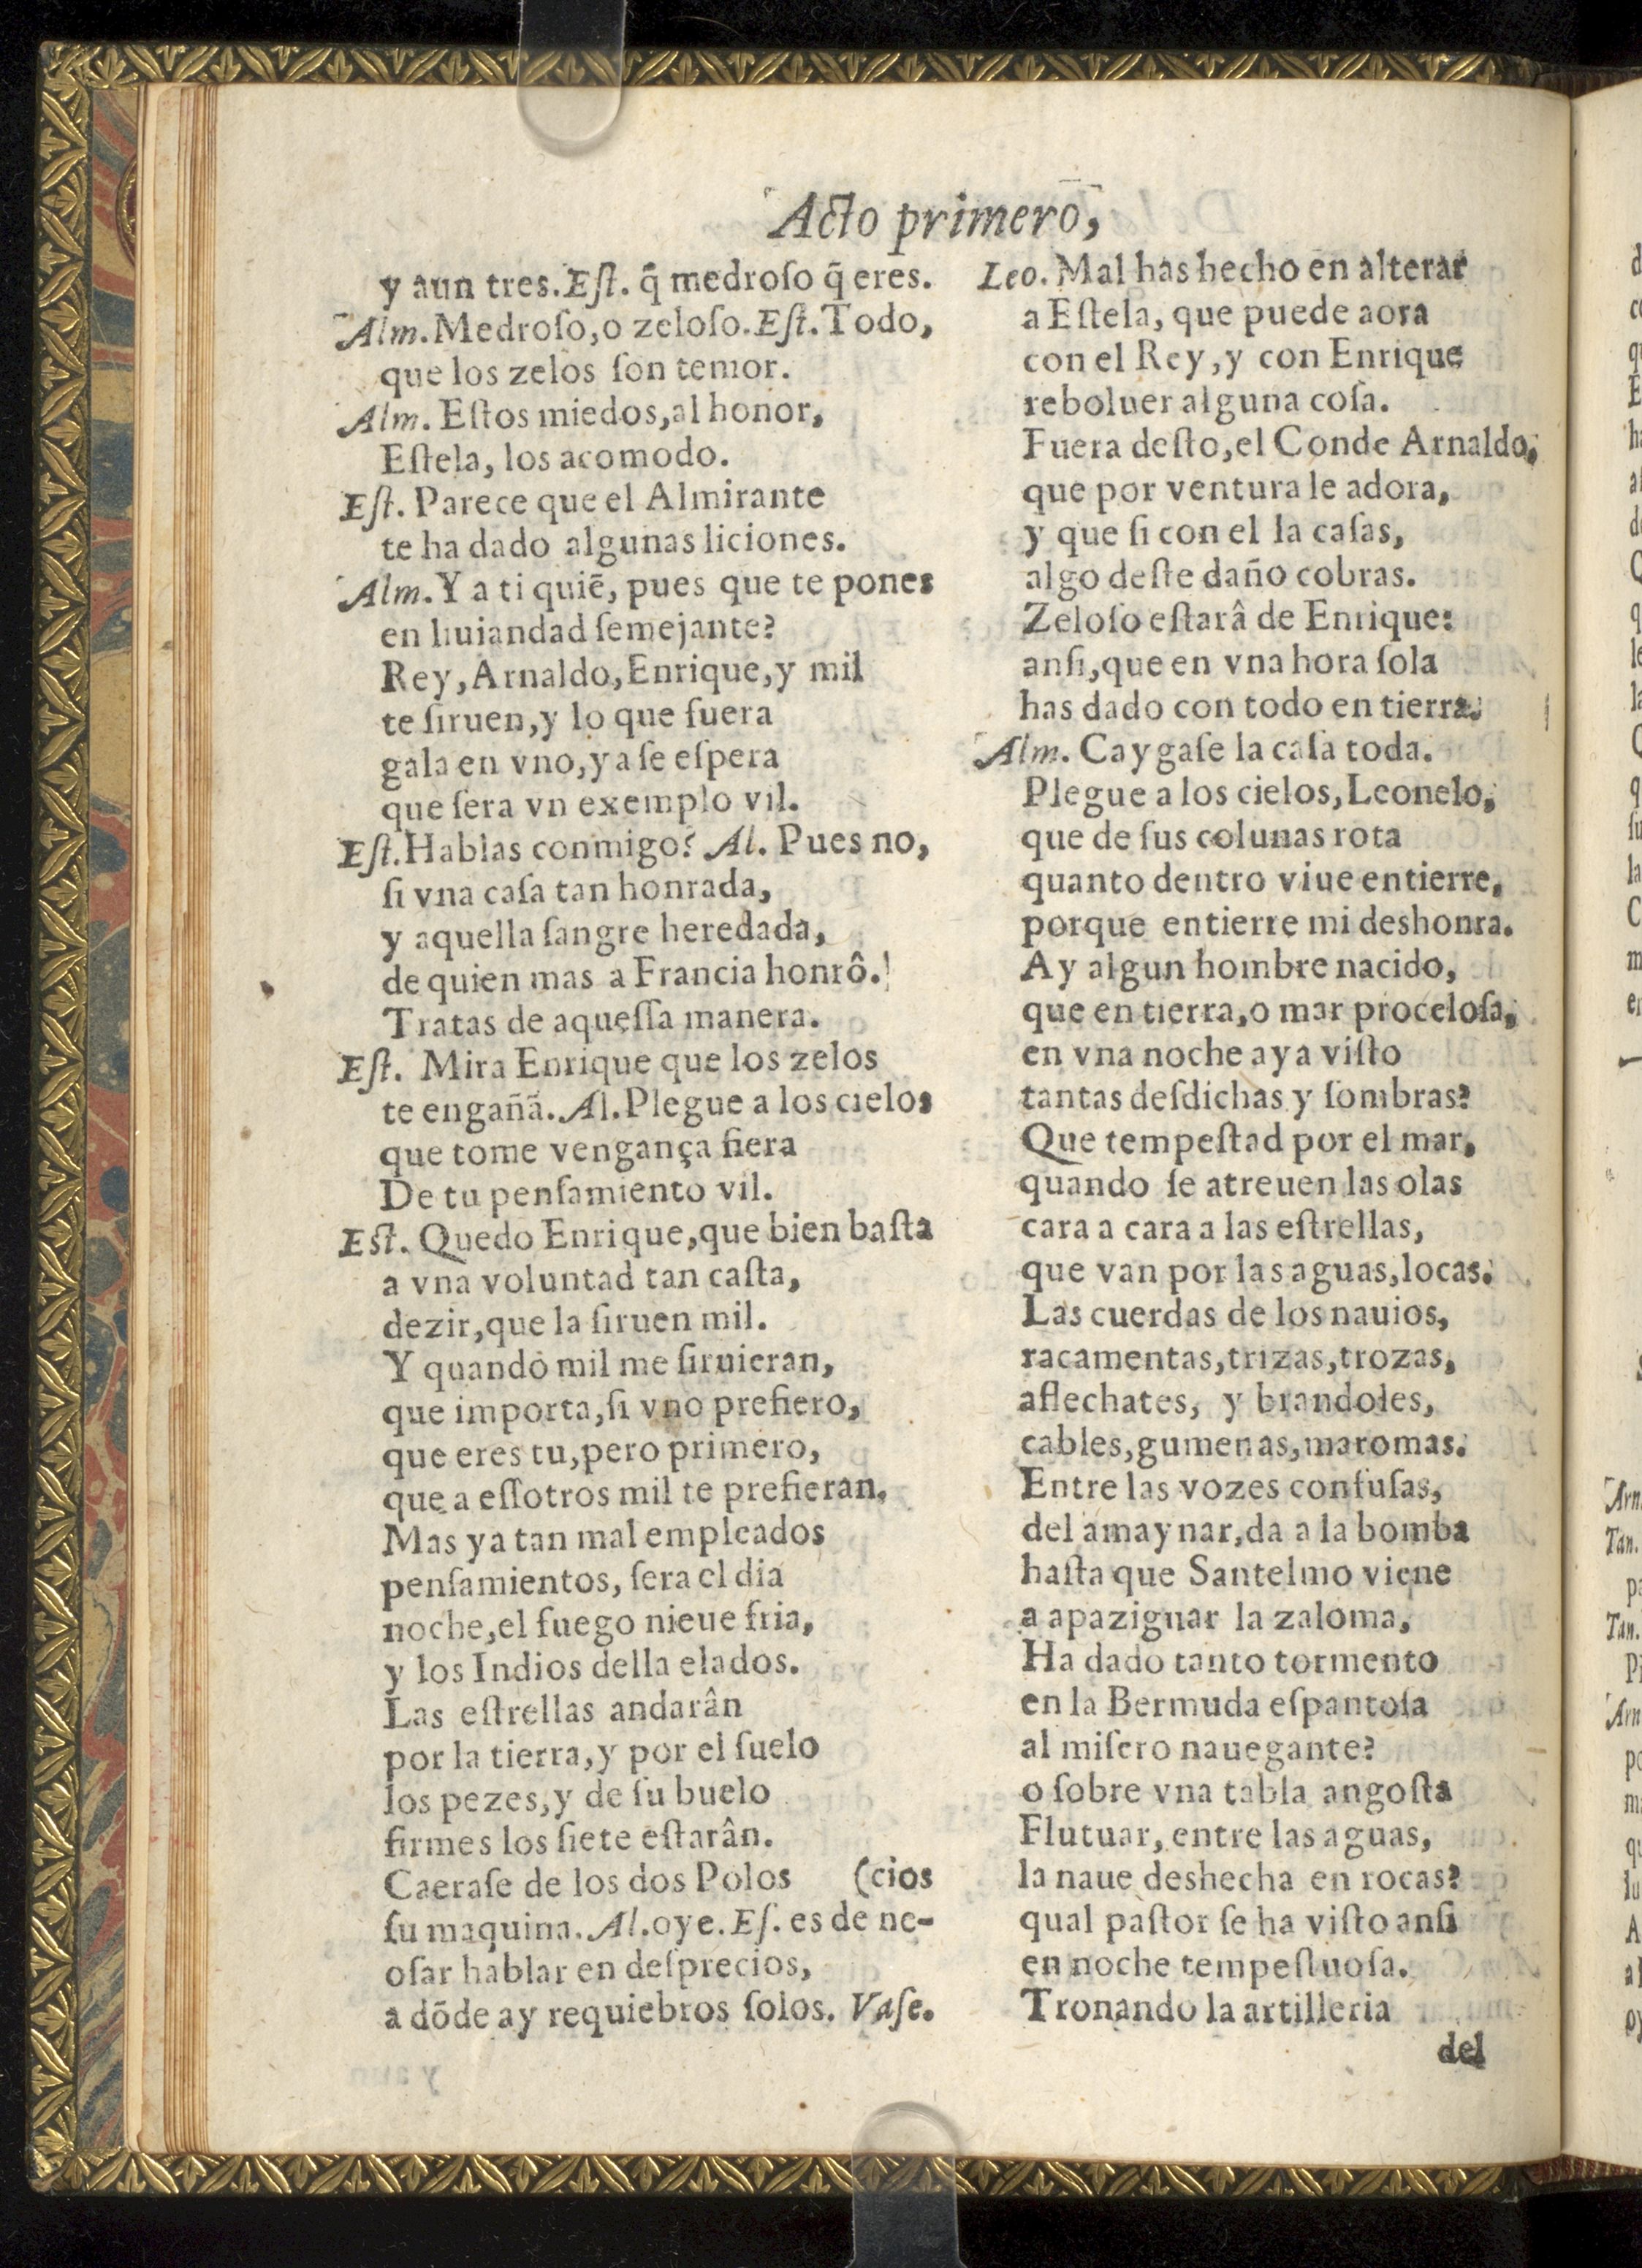 Acto primero,
y aun tres. Eſt. q̃ medroſo q̃ eres.
Alm. Medroſo, o zeloſo. Eſt. Todo,
que los zelos ſon temor.
Alm. Eſtos miedos, al honor,
Eſtela, los acomodo.
Eſt. Parece que el Almirante
te ha dado algunas liciones.
Alm. Y a ti quiẽ, pues que te pones
en liuiandad ſemejante?
Rey, Arnaldo, Enrique, y mil
te ſiruen, y lo que fuera
gala en vno, ya ſe eſpera
que ſera vn exemplo vil.
Eſt. Hablas conmigo? Al. Pues no,
ſi vna caſa tan honrada,
y aquella ſangre heredada,
de quien mas a Francia honrô.
Tratas de aqueſſa manera.
Eſt. Mira Enrique que los zelos
te engañã. Al. Plegue a los cielos
que tome vengança fiera
De tu penſamiento vil.
Eſt. Quedo Enrique, que bien baſta
a vna voluntad tan caſta,
dezir, que la ſiruen mil.
Y quando mil me ſiruieran,
que importa, ſi vno prefiero,
que eres tu, pero primero,
que a eſſotros mil te prefieran.
Mas ya tan mal empleados
penſamientos, ſera el dia
noche, el fuego nieue fria,
y los Indios della elados.
Las eſtrellas andarân
por la tierra, y por el ſuelo
los pezes, y de ſu buelo
firmes los ſiete eſtarân.
Caeraſe de los dos Polos (cios
ſu maquina. Al. oye. Eſ. es de ne-
oſar hablar en deſprecios,
a dõde ay requiebros ſolos. Vaſe.
Leo. Mal has hecho en alterar
a Eſtela, que puede aora
con el Rey, y con Enrique
reboluer alguna coſa.
Fuera deſto, el Conde Arnaldo,
que por ventura le adora,
y que ſi con el la caſas,
algo deſte daño cobras.
Zeloſo eſtarâ de Enrique:
anſi, que en vna hora ſola
has dado con todo en tierra.
Alm. Caygaſe la caſa toda.
Plegue a los cielos, Leonelo,
que de ſus colunas rota
quanto dentro viue entierre,
porque entierre mi deshonra.
Ay algun hombre nacido,
que en tierra, o mar proceloſa,
en vna noche aya viſto
tantas deſdichas y ſombras?
Que tempeſtad por el mar,
quando ſe atreuen las olas
cara a cara a las eſtrellas,
que van por las aguas, locas.
Las cuerdas de los nauios,
racamentas, trizas, trozas,
aflechates, y brandoles,
cables, gumenas, maromas.
Entre las vozes confuſas,
del amaynar, da a la bomba
haſta que Santelmo viene
a apaziguar la zaloma,
Ha dado tanto tormento
en la Bermuda eſpantoſa
al miſero nauegante?
o ſobre vna tabla angoſta
Flutuar, entre las aguas,
la naue deshecha en rocas?
qual paſtor ſe ha viſto anſi
en noche tempeſtuoſa.
Tronando la artilleria
del